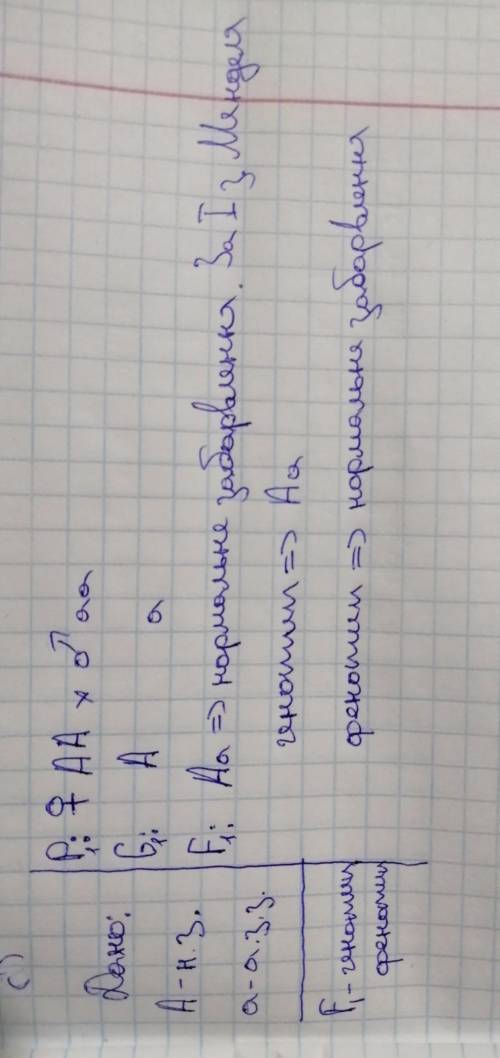 Дано:
А - н.з.
а - а.з.з.
F₁ - генотип
фенотип
P₁: ♀ AA x ♂ aa
G₁: A a
F₁: Aa => нормальне забарвлення. За I з Менделя
генотип => Aa
фенотип => нормальне забарвлення